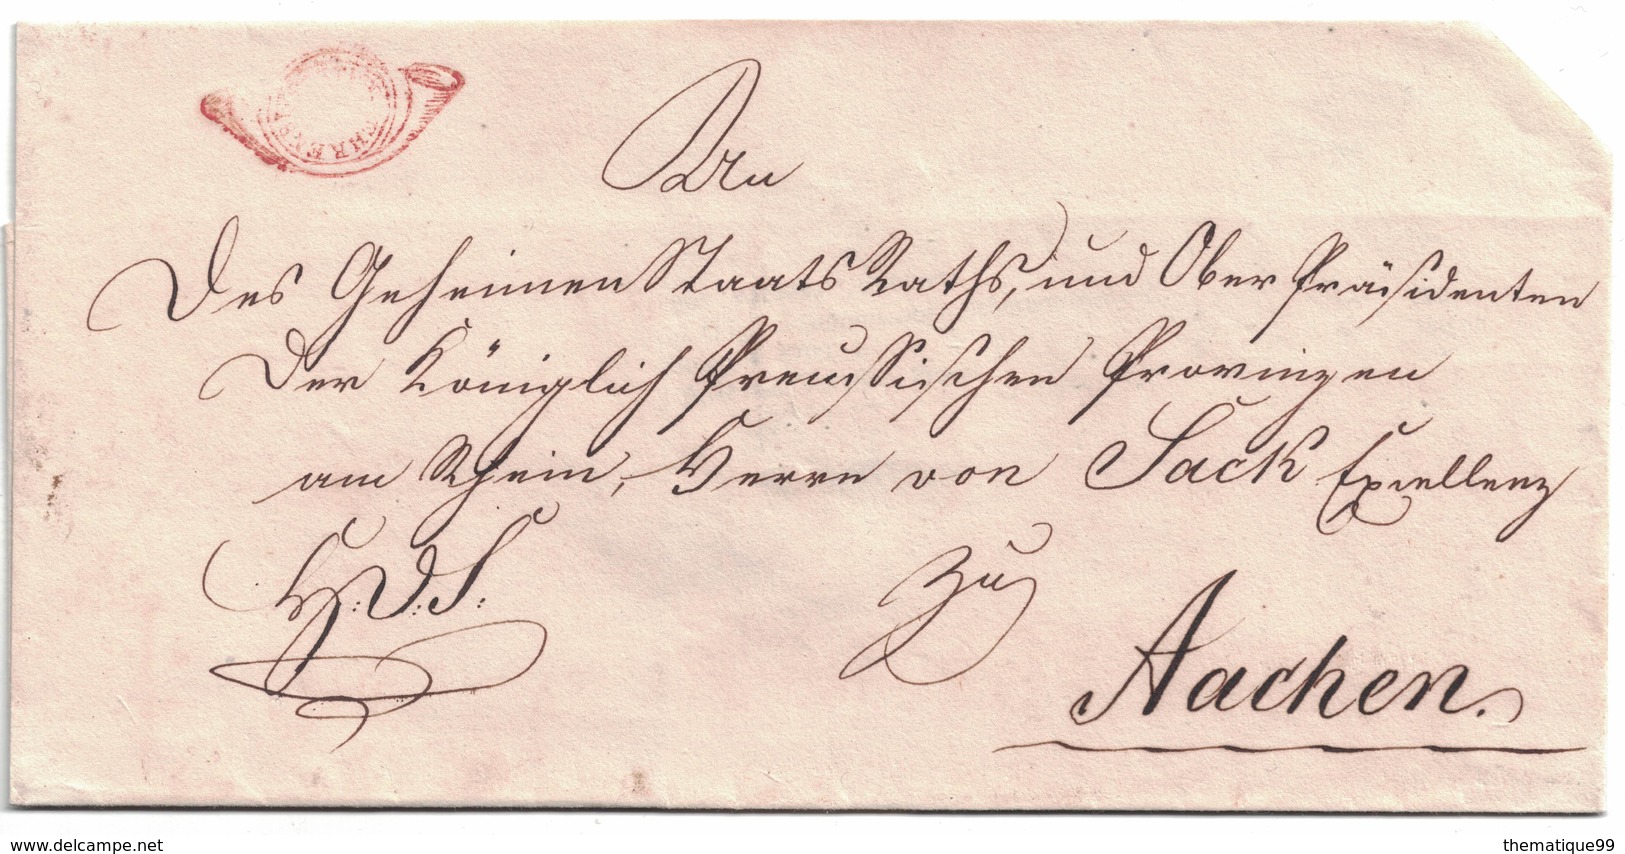 An
Des Geheimen Staats Raths, und Ober Präsidenten
der Königlich Preussischen Provinzen
am Rhein, Herrn von Sack Excellenz
H. D. S. zu
Aachen.
www.delcampe.net
thematique99